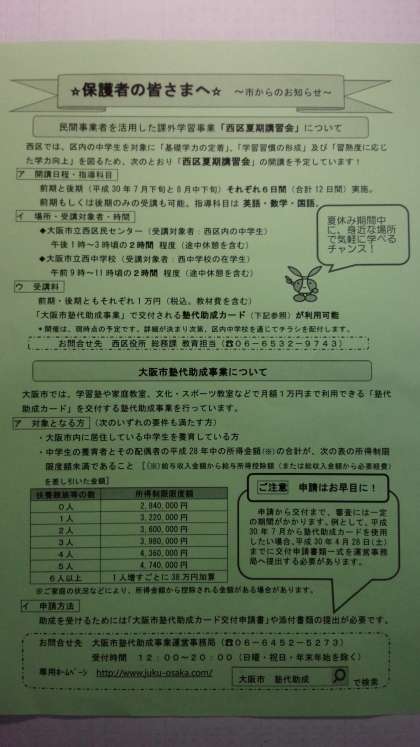 ☆保護者の皆さまへ☆ ～市からのお知らせ～
民間事業者を活用した課外学習事業「西区夏期講習会」について
西区では、区内の中学生を対象に「基礎学力の定着」、「学習習慣の形成」及び「習熟度に応じ
た学力向上」を図るため、次のとおり「西区夏期講習会」の開講を予定しています！
ア 開講日程・指導科目
前期と後期（平成30年7月下旬と8月中下旬）それぞれ6日間（合計12日間）実施。
前期もしくは後期のみの受講も可能、指導科目は 英語・数学・国語。
イ 場所・受講対象者・時間
◆大阪市立西区民センター（受講対象者：西区内の中学生）
午後1時～3時頃の2時間 程度（途中休憩を含む）
◆大阪市立西中学校（受講対象者：西中学校の在学生）
午前9時～11時頃の2時間 程度（途中休憩を含む）
夏休み期間中
に、身近な場所
で気軽に学べる
チャンス！
ウ 受講料
前期・後期ともそれぞれ1万円（税込、教材費を含む）
「大阪市塾代助成事業」で交付される塾代助成カード（下記参照）が利用可能
＊開催は、現時点の予定です。詳細が決まり次第、区内中学校を通じてチラシを配付します。
お問合せ先 西区役所 総務課 教育担当（☎06-6532-9743）
大阪市塾代助成事業について
大阪市では、学習塾や家庭教室、文化・スポーツ教室などで月額1万円まで利用できる「塾代
助成カード」を交付する塾代助成事業を行っています。
ア 対象となる方（次のいずれの要件も満たす方）
・大阪市内に居住している中学生を養育している方
・中学生の養育者とその配偶者の平成28年中の所得金額(※)の合計が、次の表の所得制
限限度額未満であること 〔(※)給与収入金額から給与所得控除額（または総収入金額から必要経費）
を差し引いた金額〕
扶養親族等の数 所得制限限度額
0人 2,840,000円
1人 3,220,000円
2人 3,600,000円
3人 3,980,000円
4人 4,360,000円
5人 4,740,000円
6人以上 1人増すごとに38万円加算
ご注意 申請はお早目に！
申請から交付まで、審査には一定
の期間がかかります。例として、平成
30年7月から塾代助成カードを使用
したい場合、平成30年4月28日(土)
までに交付申請書類一式を運営事務
局へ提出する必要があります。
※ご家庭の状況などにより、所得金額から控除される金額がある場合があります。
イ 申請方法
助成を受けるためには「大阪市塾代助成カード交付申請書」や添付書類の提出が必要です。
お問合せ先 大阪市塾代助成事業運営事務局（☎06-6452-5273）
受付時間 12:00～20:00（日曜・祝日・年末年始を除く）
専用ホームページ http://www.juku-osaka.com/ 大阪市 塾代助成 で検索